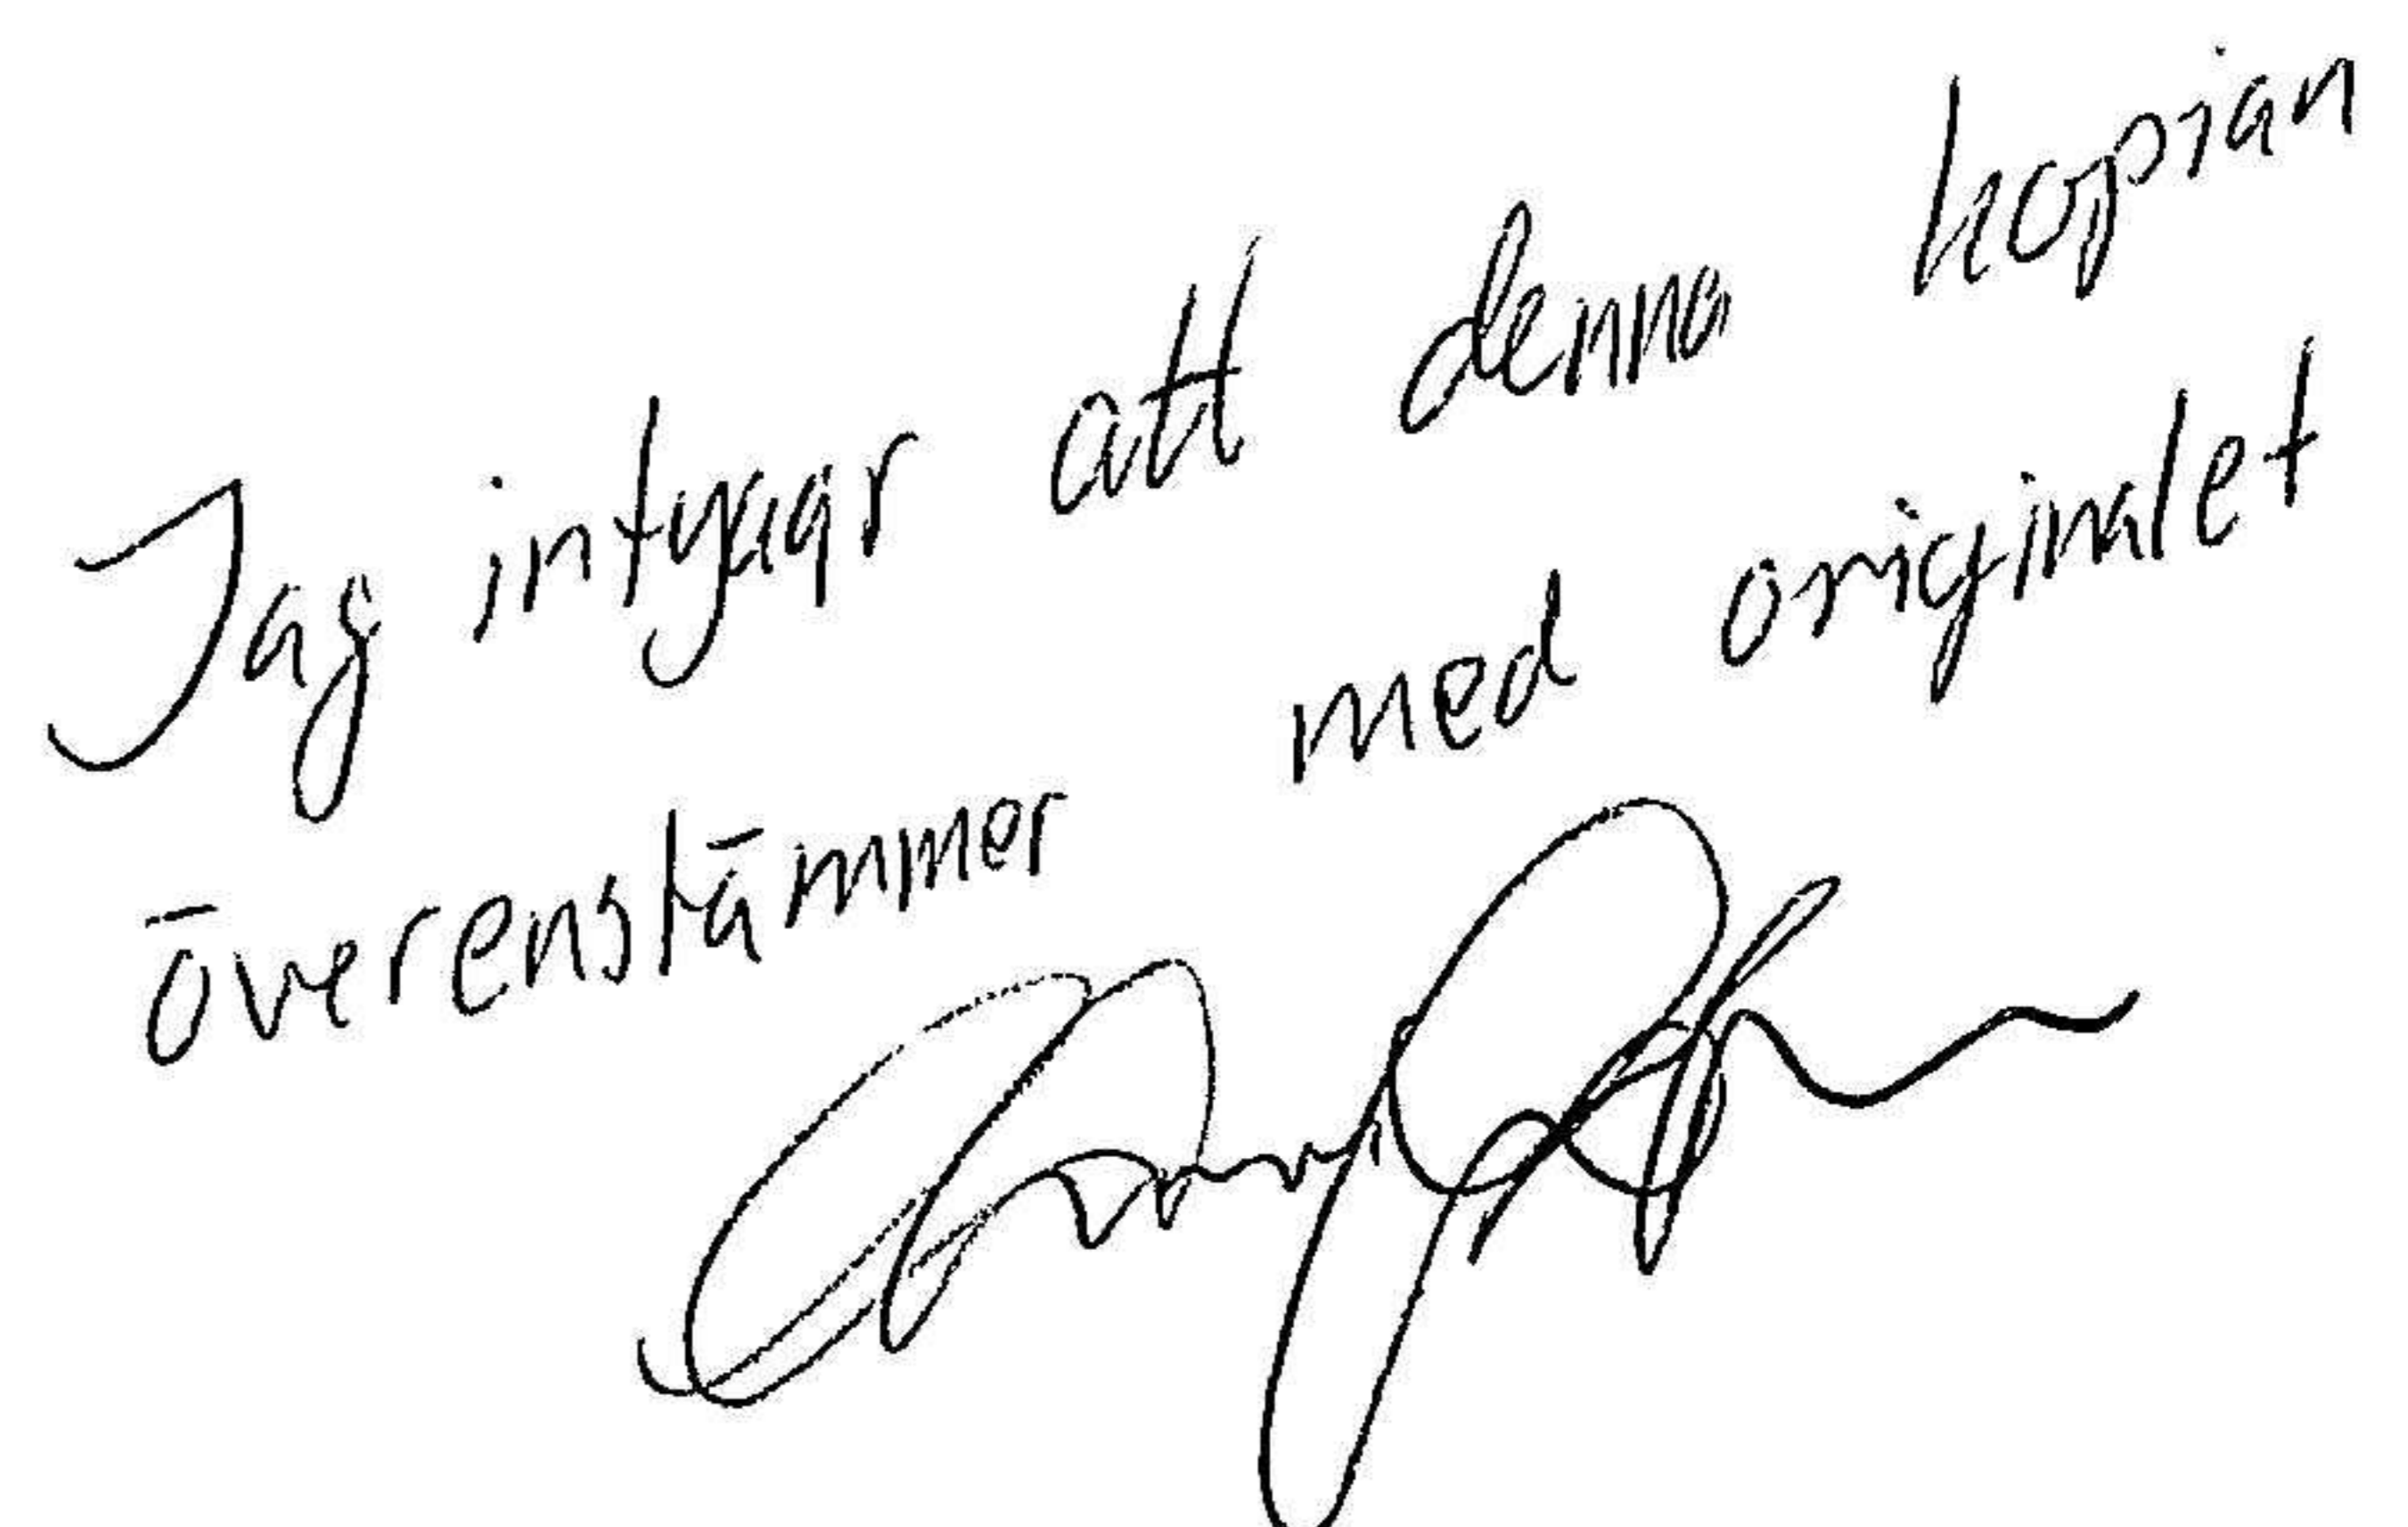 Jag intyaar att denna kopian
överenstämmer med originalet